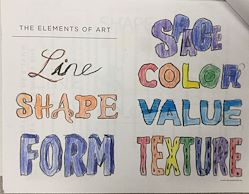 THE ELEMENTS OF ART
Line
SHAPE
FORM
SPACE
COLOR
VALUE
TEXTURE